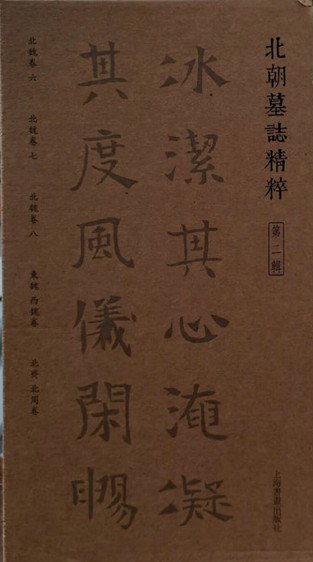 北朝墓誌精粹
第二輯
上海書畫出版社
冰潔其心淹凝
其度風儀閑暢
北魏卷 六
北魏卷 七
北魏卷 八
東魏 西魏卷
北齊 北周卷